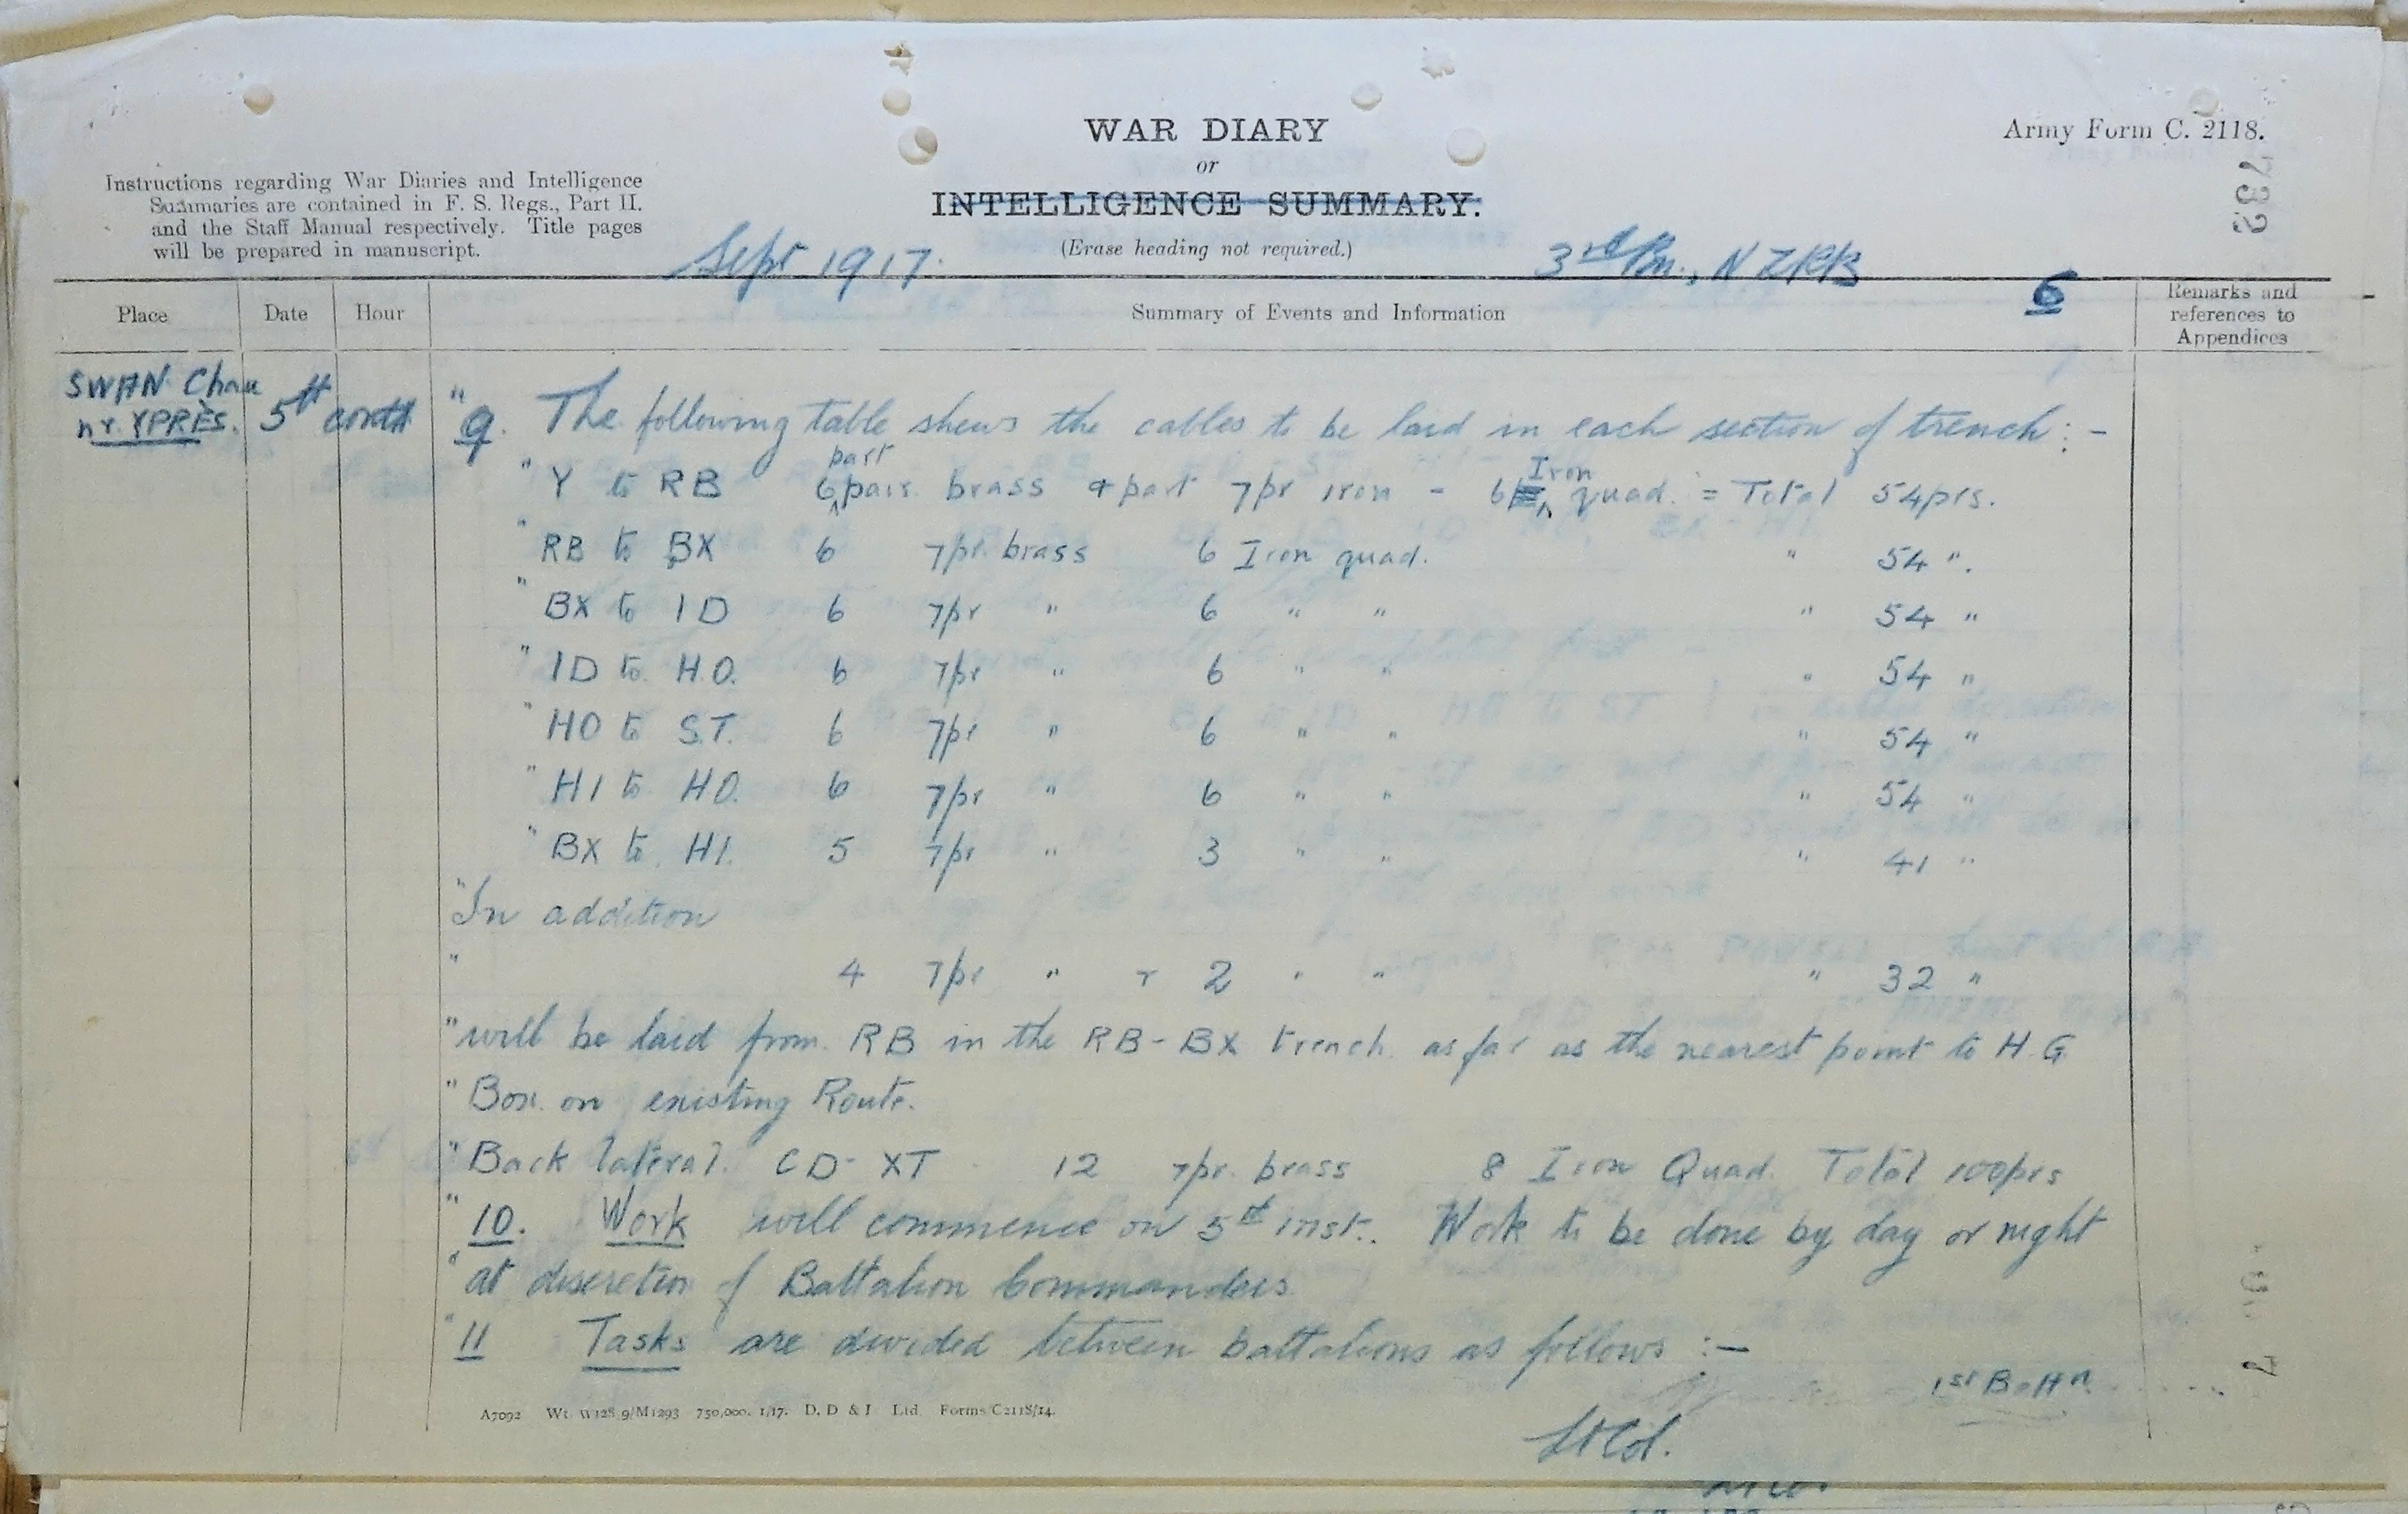 WAR DIARY
or
INTELLIGENCE SUMMARY.
(Erase heading not required.)
Army Form C. 2118.
732
Instructions regarding War Diaries and Intelligence
Summaries are contained in F. S. Regs., Part II.
and the Staff Manual respectively. Title pages
will be prepared in manuscript.
Sept 1917.
3rd Bn., NZRB
6
Place Date Hour Summary of Events and Information Remarks and references to Appendices
SWAN Chau
nr. YPRÈS. 5th contd
"9. The following table shews the cables to be laid in each section of trench :-
" Y to RB 6 part pair brass & part 7pr iron - 6 Iron quad. = Total 54prs.
" RB to BX 6 7pr. brass 6 Iron quad. " 54 ".
" BX to ID 6 7pr " 6 " " " 54 "
" ID to H.O. 6 7pr " 6 " " " 54 "
" HO to S.T. 6 7pr " 6 " " " 54 "
" HI to HO. 6 7pr " 6 " " " 54 "
" BX to HI. 5 7pr " 3 " " " 41 "
"In addition
" 4 7pr " + 2 " " " 32 "
"will be laid from RB in the RB-BX trench as far as the nearest point to H.G
"Box on existing Route.
"Back lateral CD-XT 12 7pr. brass 8 Iron Quad. Total 100prs
"10. Work will commence on 5th inst. Work to be done by day or night
"at discretion of Battalion Commanders
"11 Tasks are divided between battalions as follows :-
1st Battn
A7092 Wt. W128 9/M1293 750,000. 1/17. D. D & L Ltd. Forms/C2118/14.
Lt Col.